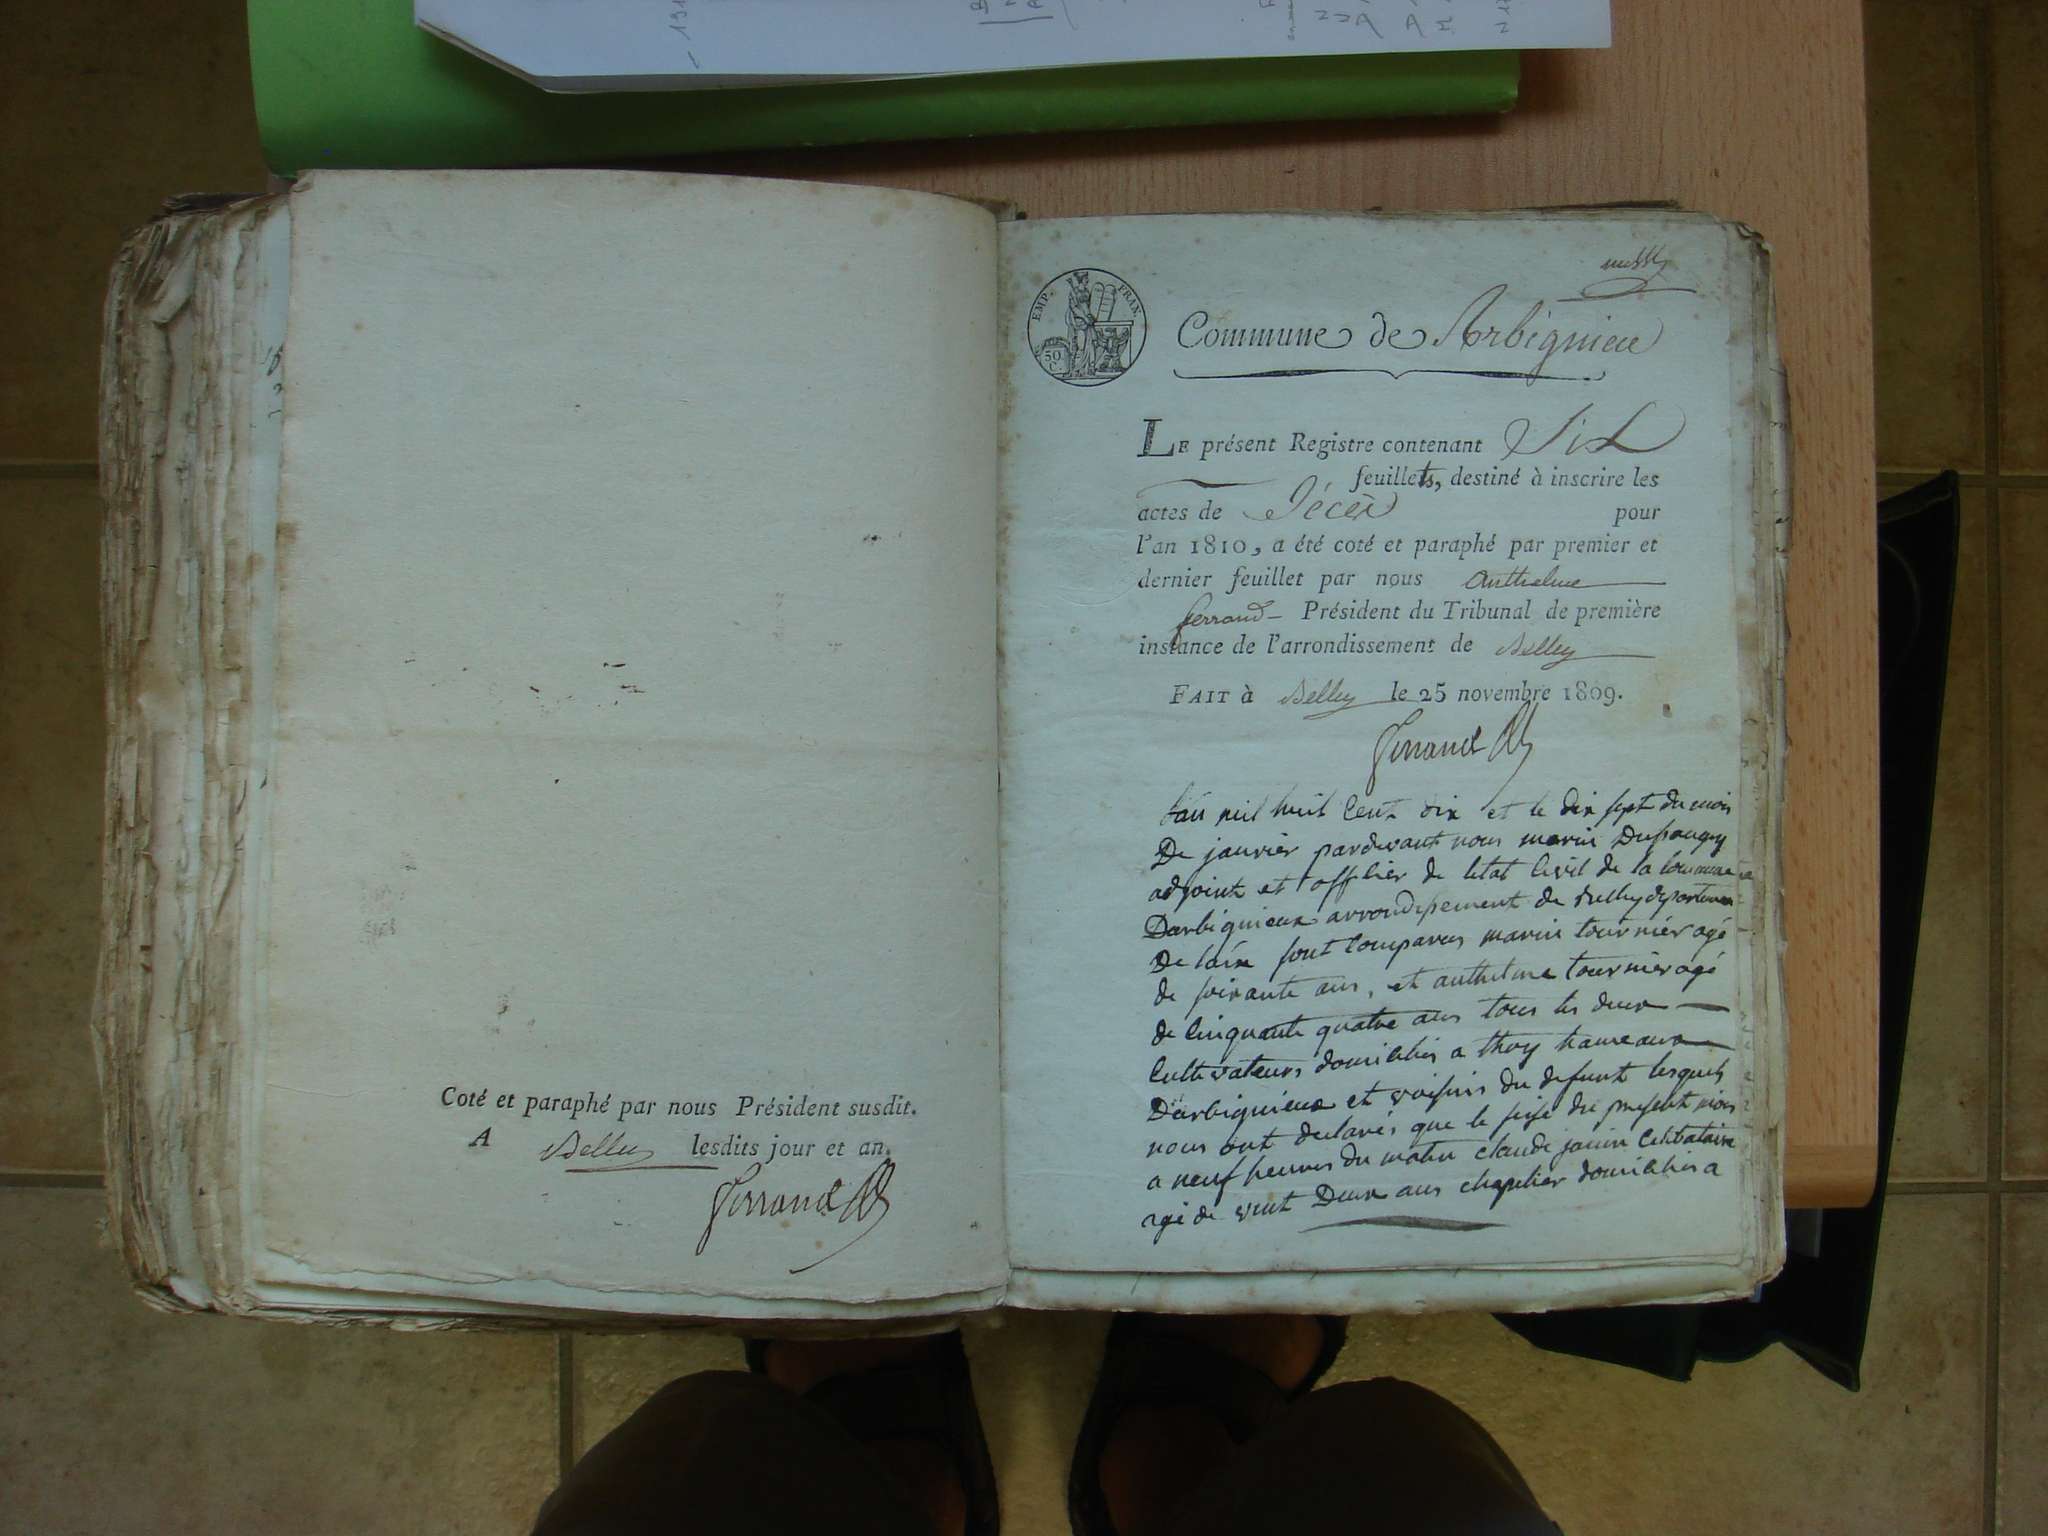 Coté et paraphé par nous Président susdit.
A Belley lesdits jour et an.
Ferrand
EMP. FRAN.
50
C.
Commune de Arbignieu
LE présent Registre contenant Six
feuillets, destiné à inscrire les
actes de Décès pour
l'an 1810, a été coté et paraphé par premier et
dernier feuillet par nous Anthelme
ferrand Président du Tribunal de première
instance de l'arrondissement de Belley
FAIT à Belley le 25 novembre 1809.
Ferrand
L'an mil huit Cent dix et le dix sept du mois
De janvier pardevant nous marin
adjoint et officier de letat Civil de la Commune
Darbignieux arrondissement de Belley departement
De lain sont Comparus marin tournier agé
de soixante ans, et anthelme tournier agé
de Cinquante quatre ans tous les deux
Cultivateurs domiciliés a thoy hameaux
Darbignieux et voisins du defunt lesquels
nous ont declarés que le seise du present mois
a neuf heures du matin claude janin Celibataire
agé de vint Deux ans chapelier domicilies a